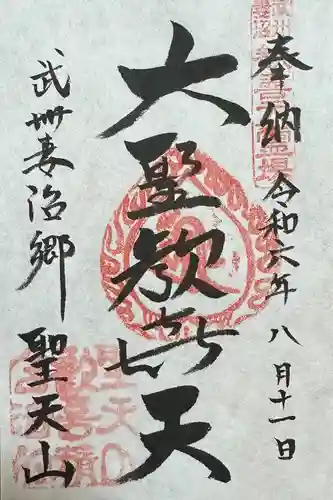 奉納
令和六年
八月十一日
大聖歓㐂天
武州妻沼郷
聖天山